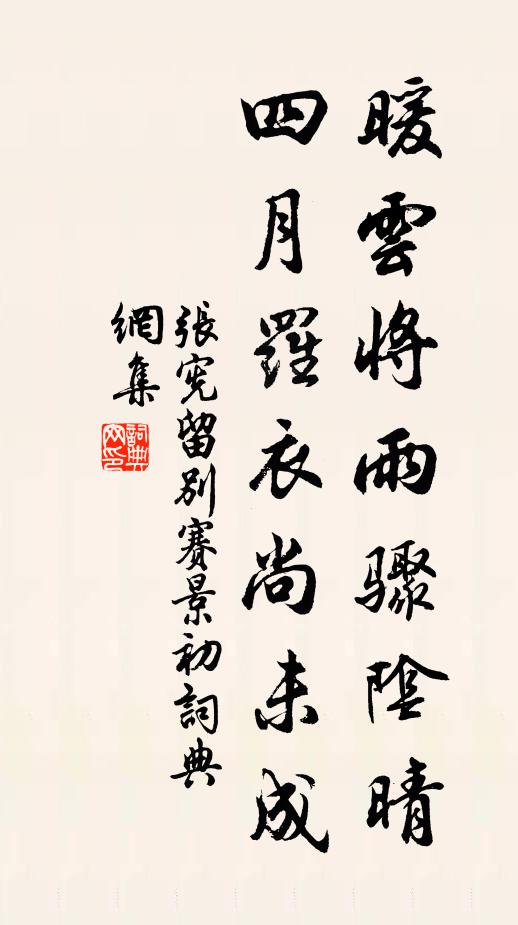 暖雲將雨驟陰晴
四月羅衣尚未成
張憲留別賽景初詞典
網集
詞典
网印